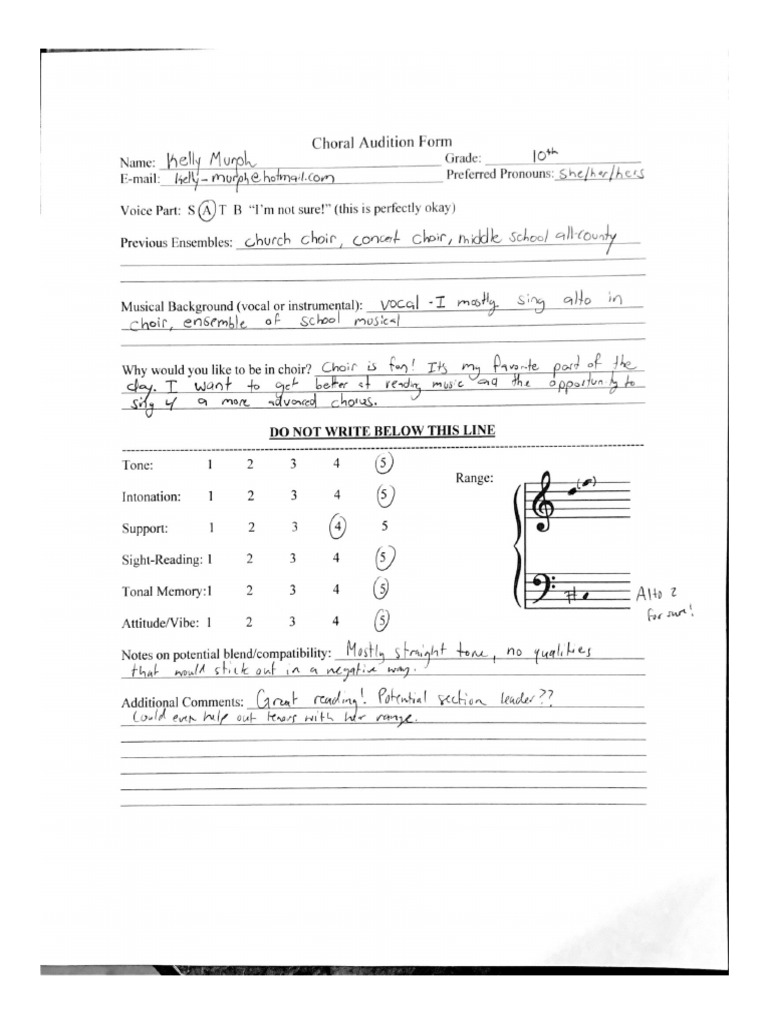 Choral Audition Form
Name: Kelly Murph Grade: 10th
E-mail: kelly-murph@hotmail.com Preferred Pronouns: She/her/hers
Voice Part: S A T B "I'm not sure!" (this is perfectly okay)
Previous Ensembles: church choir, concert choir, middle school all-county
Musical Background (vocal or instrumental): vocal - I mostly sing alto in
choir, ensemble of school musical
Why would you like to be in choir? Choir is fun! Its my favorite part of the
day. I want to get better at reading music and the opportunity to
sing w/ a more advanced chorus.
DO NOT WRITE BELOW THIS LINE
Tone: 1 2 3 4 5
Range:
Intonation: 1 2 3 4 5
Support: 1 2 3 4 5
Sight-Reading: 1 2 3 4 5
Tonal Memory: 1 2 3 4 5
Alto 2
for sure!
Attitude/Vibe: 1 2 3 4 5
Notes on potential blend/compatibility: Mostly straight tone, no qualities
that would stick out in a negative way.
Additional Comments: Great reading! Potential section leader??
Could even help out tenors with her range.